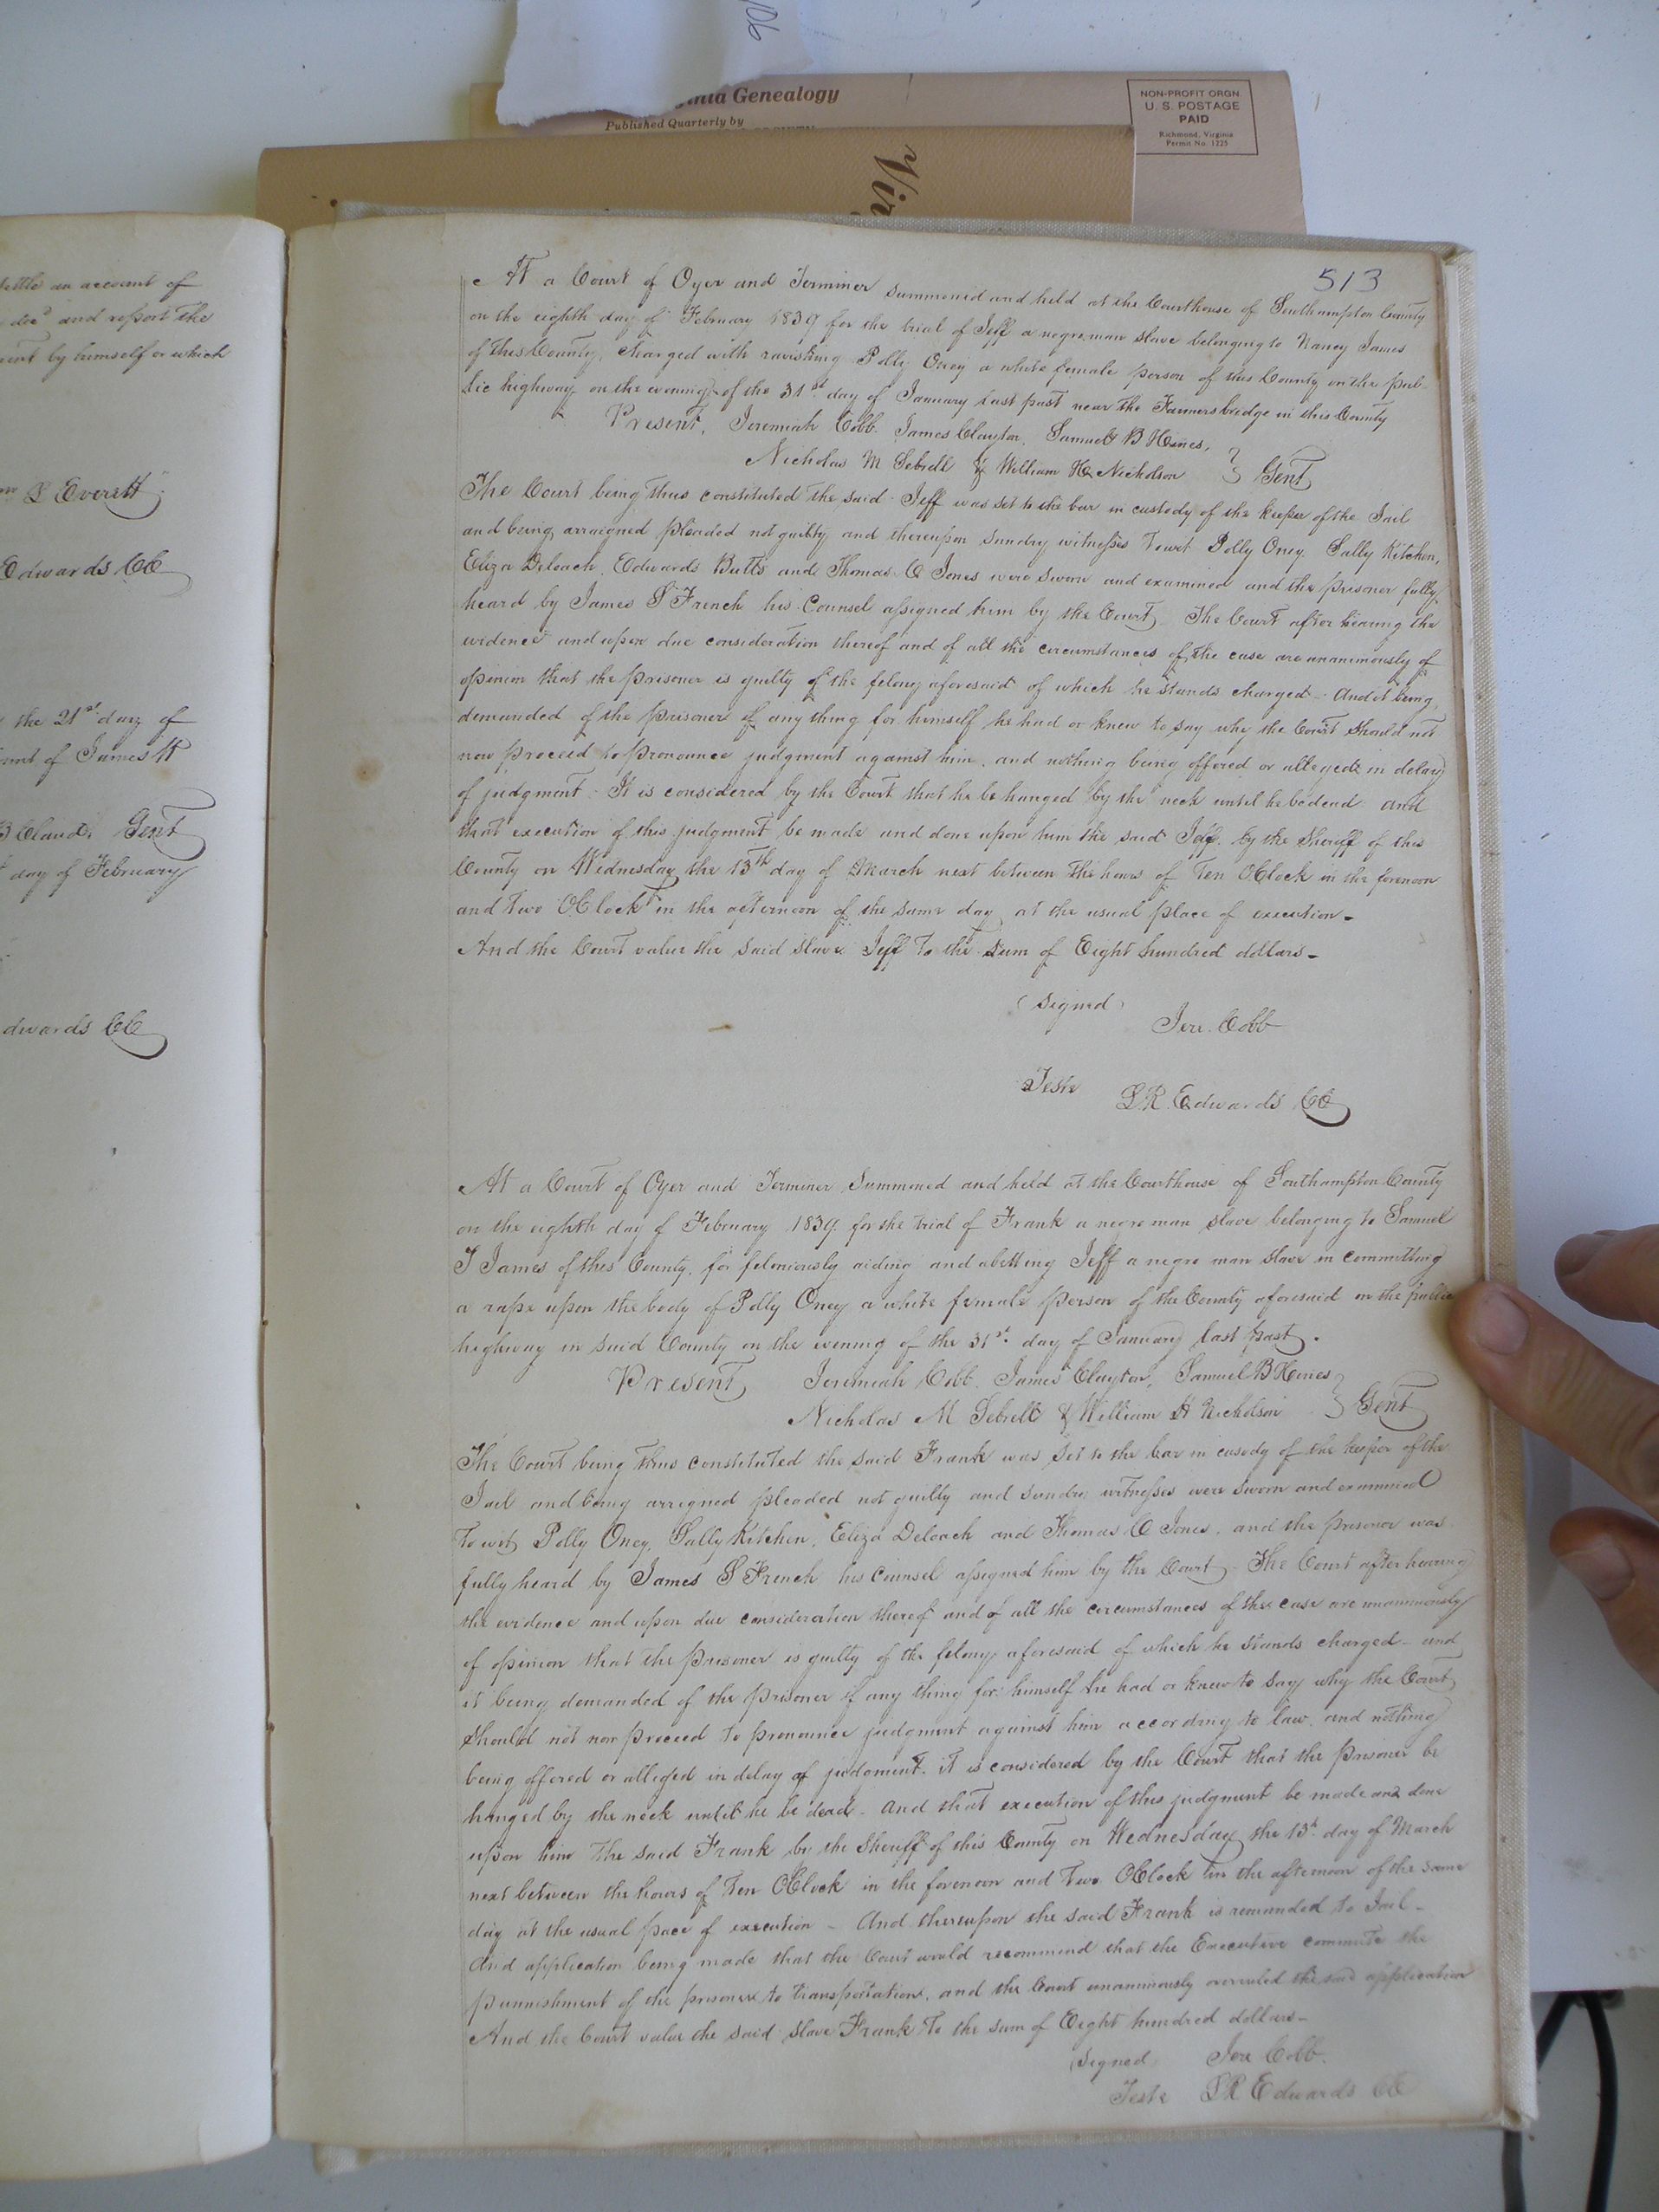 106
Virginia Genealogy
Published Quarterly by
NON-PROFIT ORGN.
U. S. POSTAGE
PAID
Richmond, Virginia
Permit No. 1225
Vir
settle an account of
decd and report the
by himself or which
S Everett
Edwards CC
the 21st day of
of James W
B Claud Gent
day of February
dwards CC
513
At a Court of Oyer and Terminer summoned and held at the Courthouse of Southampton County
on the eighth day of February 1839 for the trial of Jeff a negro man slave belonging to Nancy James
of this County, charged with ravishing Polly Oney a white female person of this County on the pub-
lic highway on the evening of the 31st day of January last past near the Farmers bridge in this County
Present, Jeremiah Cobb. James Clayton, Samuel B Hines,
Nicholas M Sebrell & William H Nicholson } Gent
The Court being thus constituted the said Jeff was set to the bar in custody of the keeper of the Jail
and being arraigned pleaded not guilty and thereupon sundry witnesses to wit Polly Oney. Sally Kitchen,
Eliza Deloach, Edwards Butts and Thomas C Jones were sworn and examined and the prisoner fully
heard by James S French his Counsel assigned him by the Court - The Court after hearing the
evidence and upon due consideration thereof and of all the circumstances of the case are unanimously of
opinion that the prisoner is guilty of the felony aforesaid of which he stands charged - And it being
demanded of the prisoner if any thing for himself he had or knew to say why the Court should not
now proceed to pronounce judgment against him, and nothing being offered or alleged in delay
of judgment - It is considered by the Court that he be hanged by the neck until he be dead and
that execution of this judgment be made and done upon him the said Jeff. by the Sheriff of this
County on Wednesday the 13th day of March next between the hours of Ten OClock in the forenoon
and two OClock in the afternoon of the same day at the usual place of execution -
And the Court value the said slave Jeff to the sum of Eight hundred dollars -
(Signed)
Jere. Cobb
Teste
L.R. Edwards CC
At a Court of Oyer and Terminer Summoned and held at the Courthouse of Southampton County
on the eighth day of February 1839. for the trial of Frank a negro man slave belonging to Samuel
T James of this County. for feloniously aiding and abetting Jeff a negro man slave in committing
a rape upon the body of Polly Oney a white female person of the County aforesaid on the public
highway in said County on the evening of the 31st day of January last past.
Present Jeremiah Cobb. James Clayton, Samuel B Hines
Nicholas M Sebrell & William H Nicholson } Gent
The Court being thus constituted the said Frank was set to the bar in cusody of the keeper of the
Jail and being arrigned pleaded not guilty and sundry witnesses were sworn and examined
To wit Polly Oney, Sally Kitchen, Eliza Deloach and Thomas C Jones. and the prisoner was
fully heard by James S French his Counsel assigned him by the Court - The Court after hearing
the evidence and upon due consideration thereof and of all the circumstances of the case are unanimously
of opinion that the prisoner is guilty of the felony aforesaid of which he stands charged - and
it being demanded of the prisoner if any thing for himself he had or knew to say why the Court
should not now proceed to pronounce judgment against him according to law, and nothing
being offered or alleged in delay of judgment. it is considered by the Court that the prisoner be
hanged by the neck until he be dead - And that execution of this judgment be made and done
upon him the said Frank by the Sheriff of this County on Wednesday the 13th day of March
next between the hours of Ten OClock in the forenoon and Two OClock in the afternoon of the same
day at the usual pace of execution - And thereupon the said Frank is remanded to Jail -
And application being made that the Court would recommend that the Executive commute the
punnishment of the prisoner to transportation, and the Court unanimously overruled the said application
And the Court value the said slave Frank To the sum of Eight hundred dollars -
(Signed) Jere Cobb.
Teste L R Edwards CC